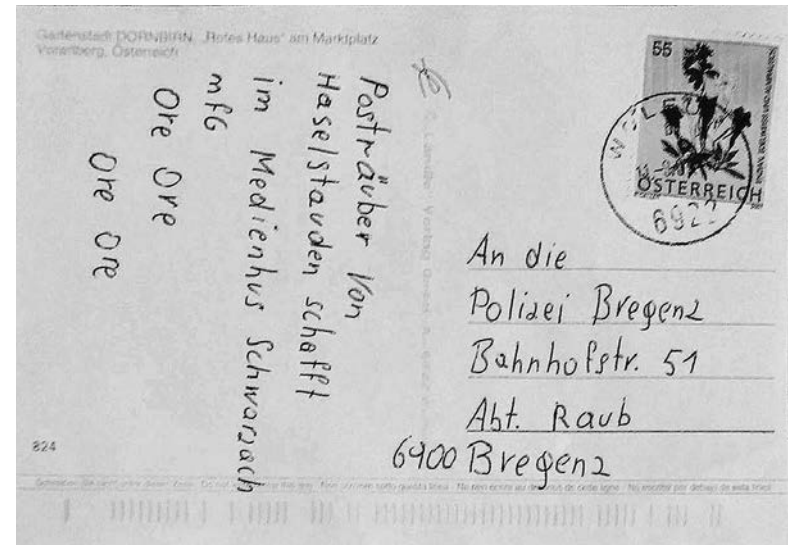 Gartenstadt DORNBIRN, „Rotes Haus" am Marktplatz
Vorarlberg, Österreich
Posträuber Von
Haselstauden schafft
im Medienhus Schwarzach
mfG
Ore Ore
Ore Ore
55
ÖSTERREICH
6922
An die
Polizei Bregenz
Bahnhofstr. 51
Abt. Raub
6900 Bregenz
824